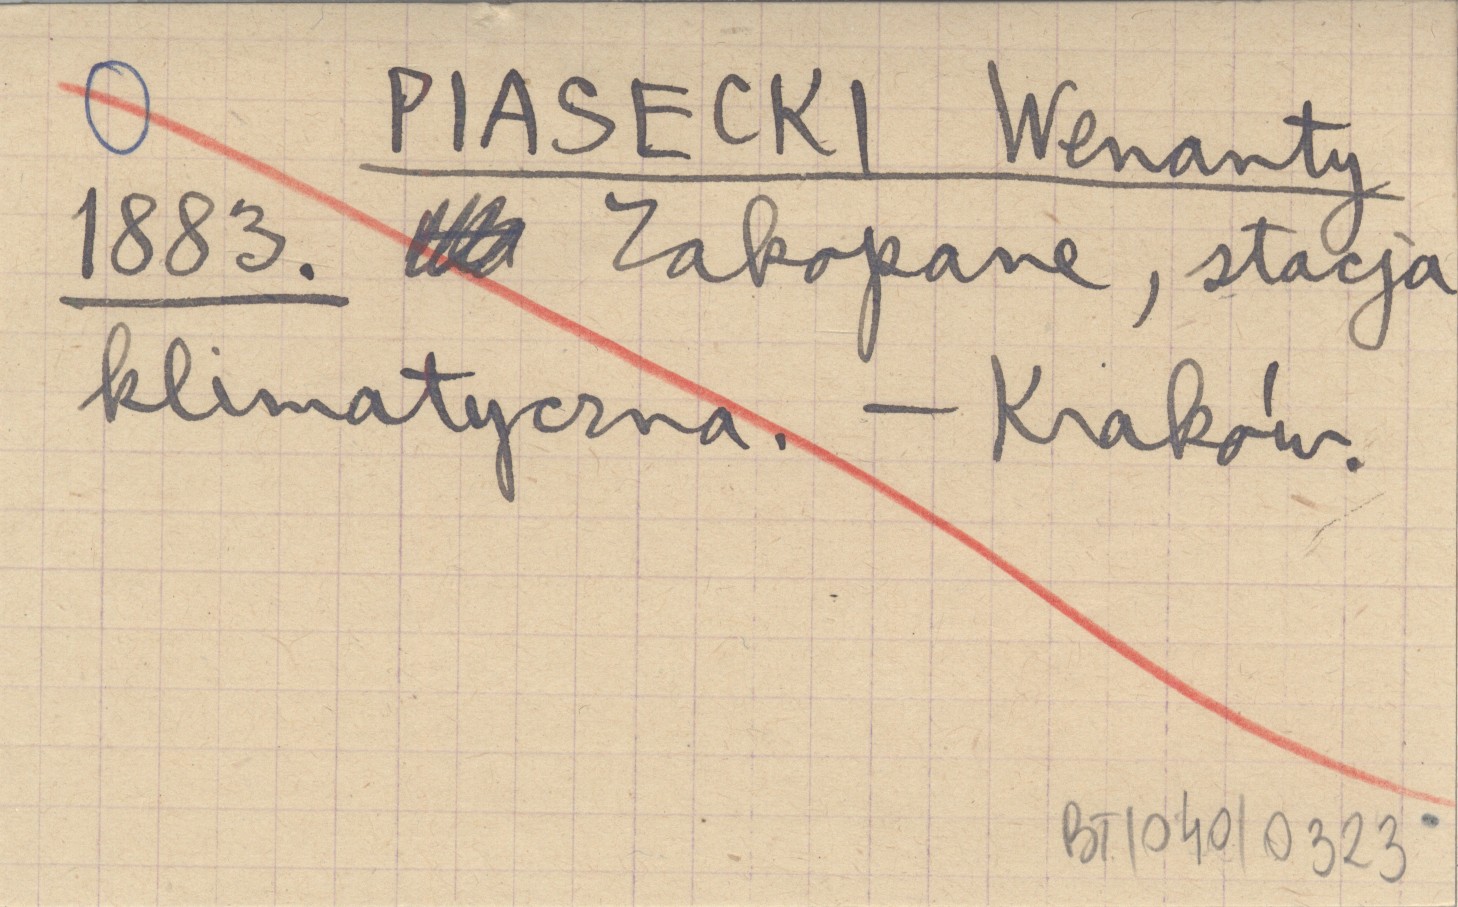 PIASECKI Wenanty
1883. Zakopane, stacja
klimatyczna. — Kraków.
BT/040/0323